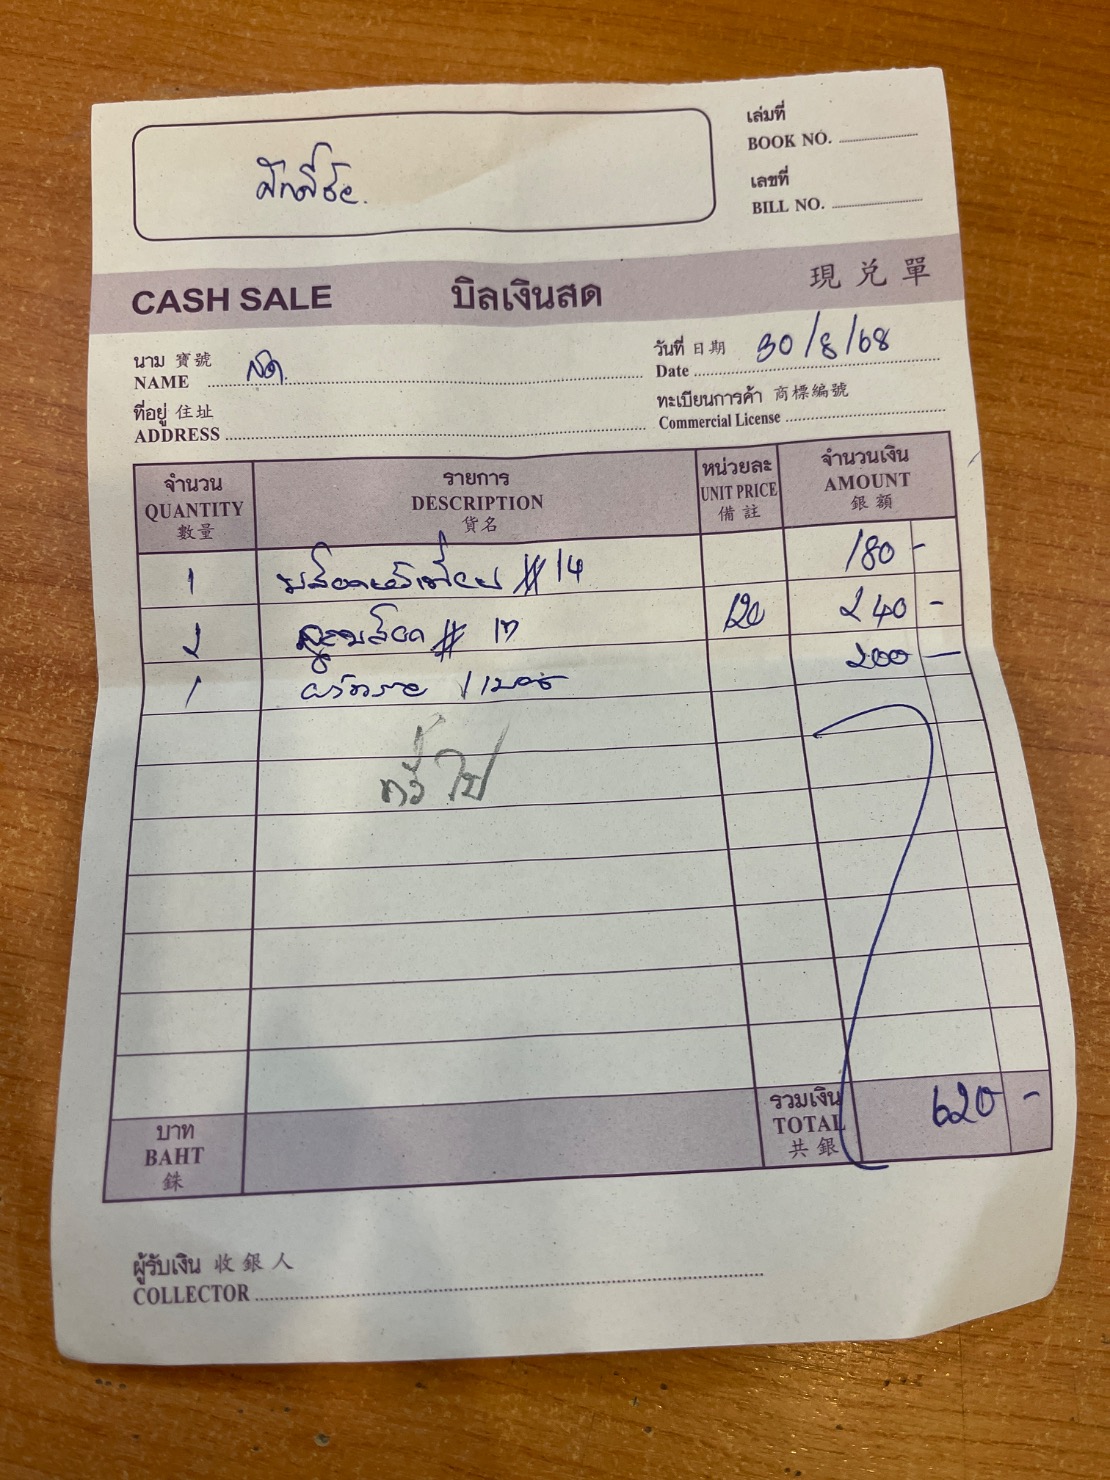 ศักดิ์ชัย.
เล่มที่
BOOK NO.
เลขที่
BILL NO.
CASH SALE บิลเงินสด 現兑單
นาม 寶號
NAME สด
วันที่ 日期
Date 30/8/68
ที่อยู่ 住址
ADDRESS
ทะเบียนการค้า 商標編號
Commercial License
จำนวน รายการ หน่วยละ จำนวนเงิน
QUANTITY DESCRIPTION UNIT PRICE AMOUNT
數量 貨名 備註 銀額
1 # 14 180 -
2 ลูกบล็อค # 17 120 240 -
1 200 -
ทั่วไป
บาท
BAHT
銖
รวมเงิน
TOTAL 620 -
共銀
ผู้รับเงิน 收銀人
COLLECTOR